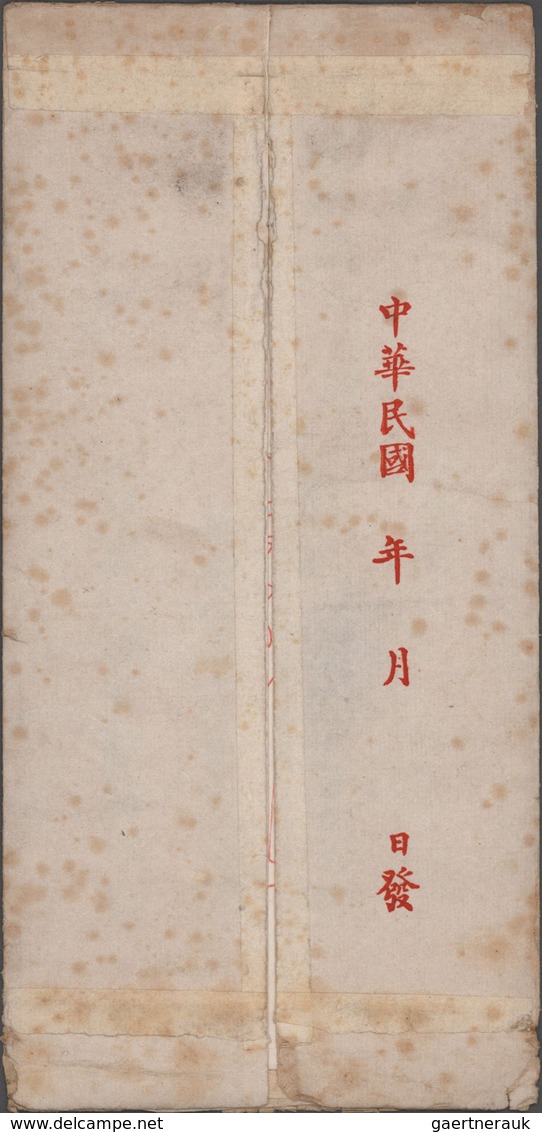 中華民國 年 月 日發
delcampe.net
gaertnerauk